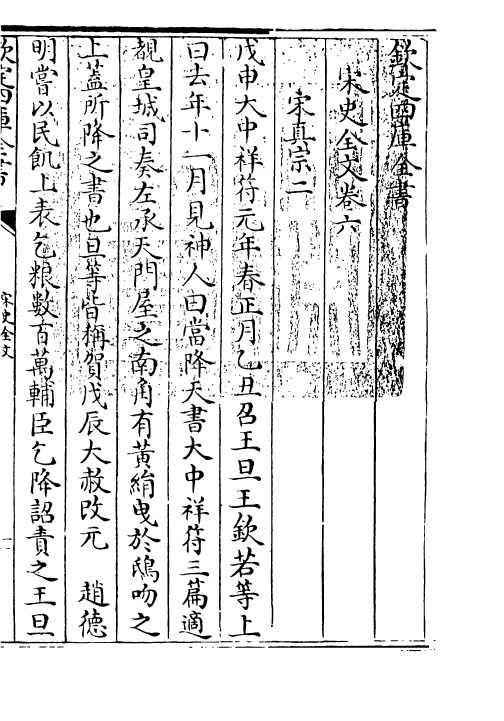 欽定四庫全書
宋史全文卷六
宋真宗二
戊申大中祥符元年春正月乙丑召王旦王欽若等上
曰去年十一月見神人曰當降天書大中祥符三篇適
覩皇城司奏左承天門屋之南角有黄絹曳於鴟吻之
上葢所降之書也旦等皆稱賀戊辰大赦改元　趙德
明嘗以民飢上表乞粮數百萬輔臣乞降詔責之王旦
欽定四庫全書
宋史全文